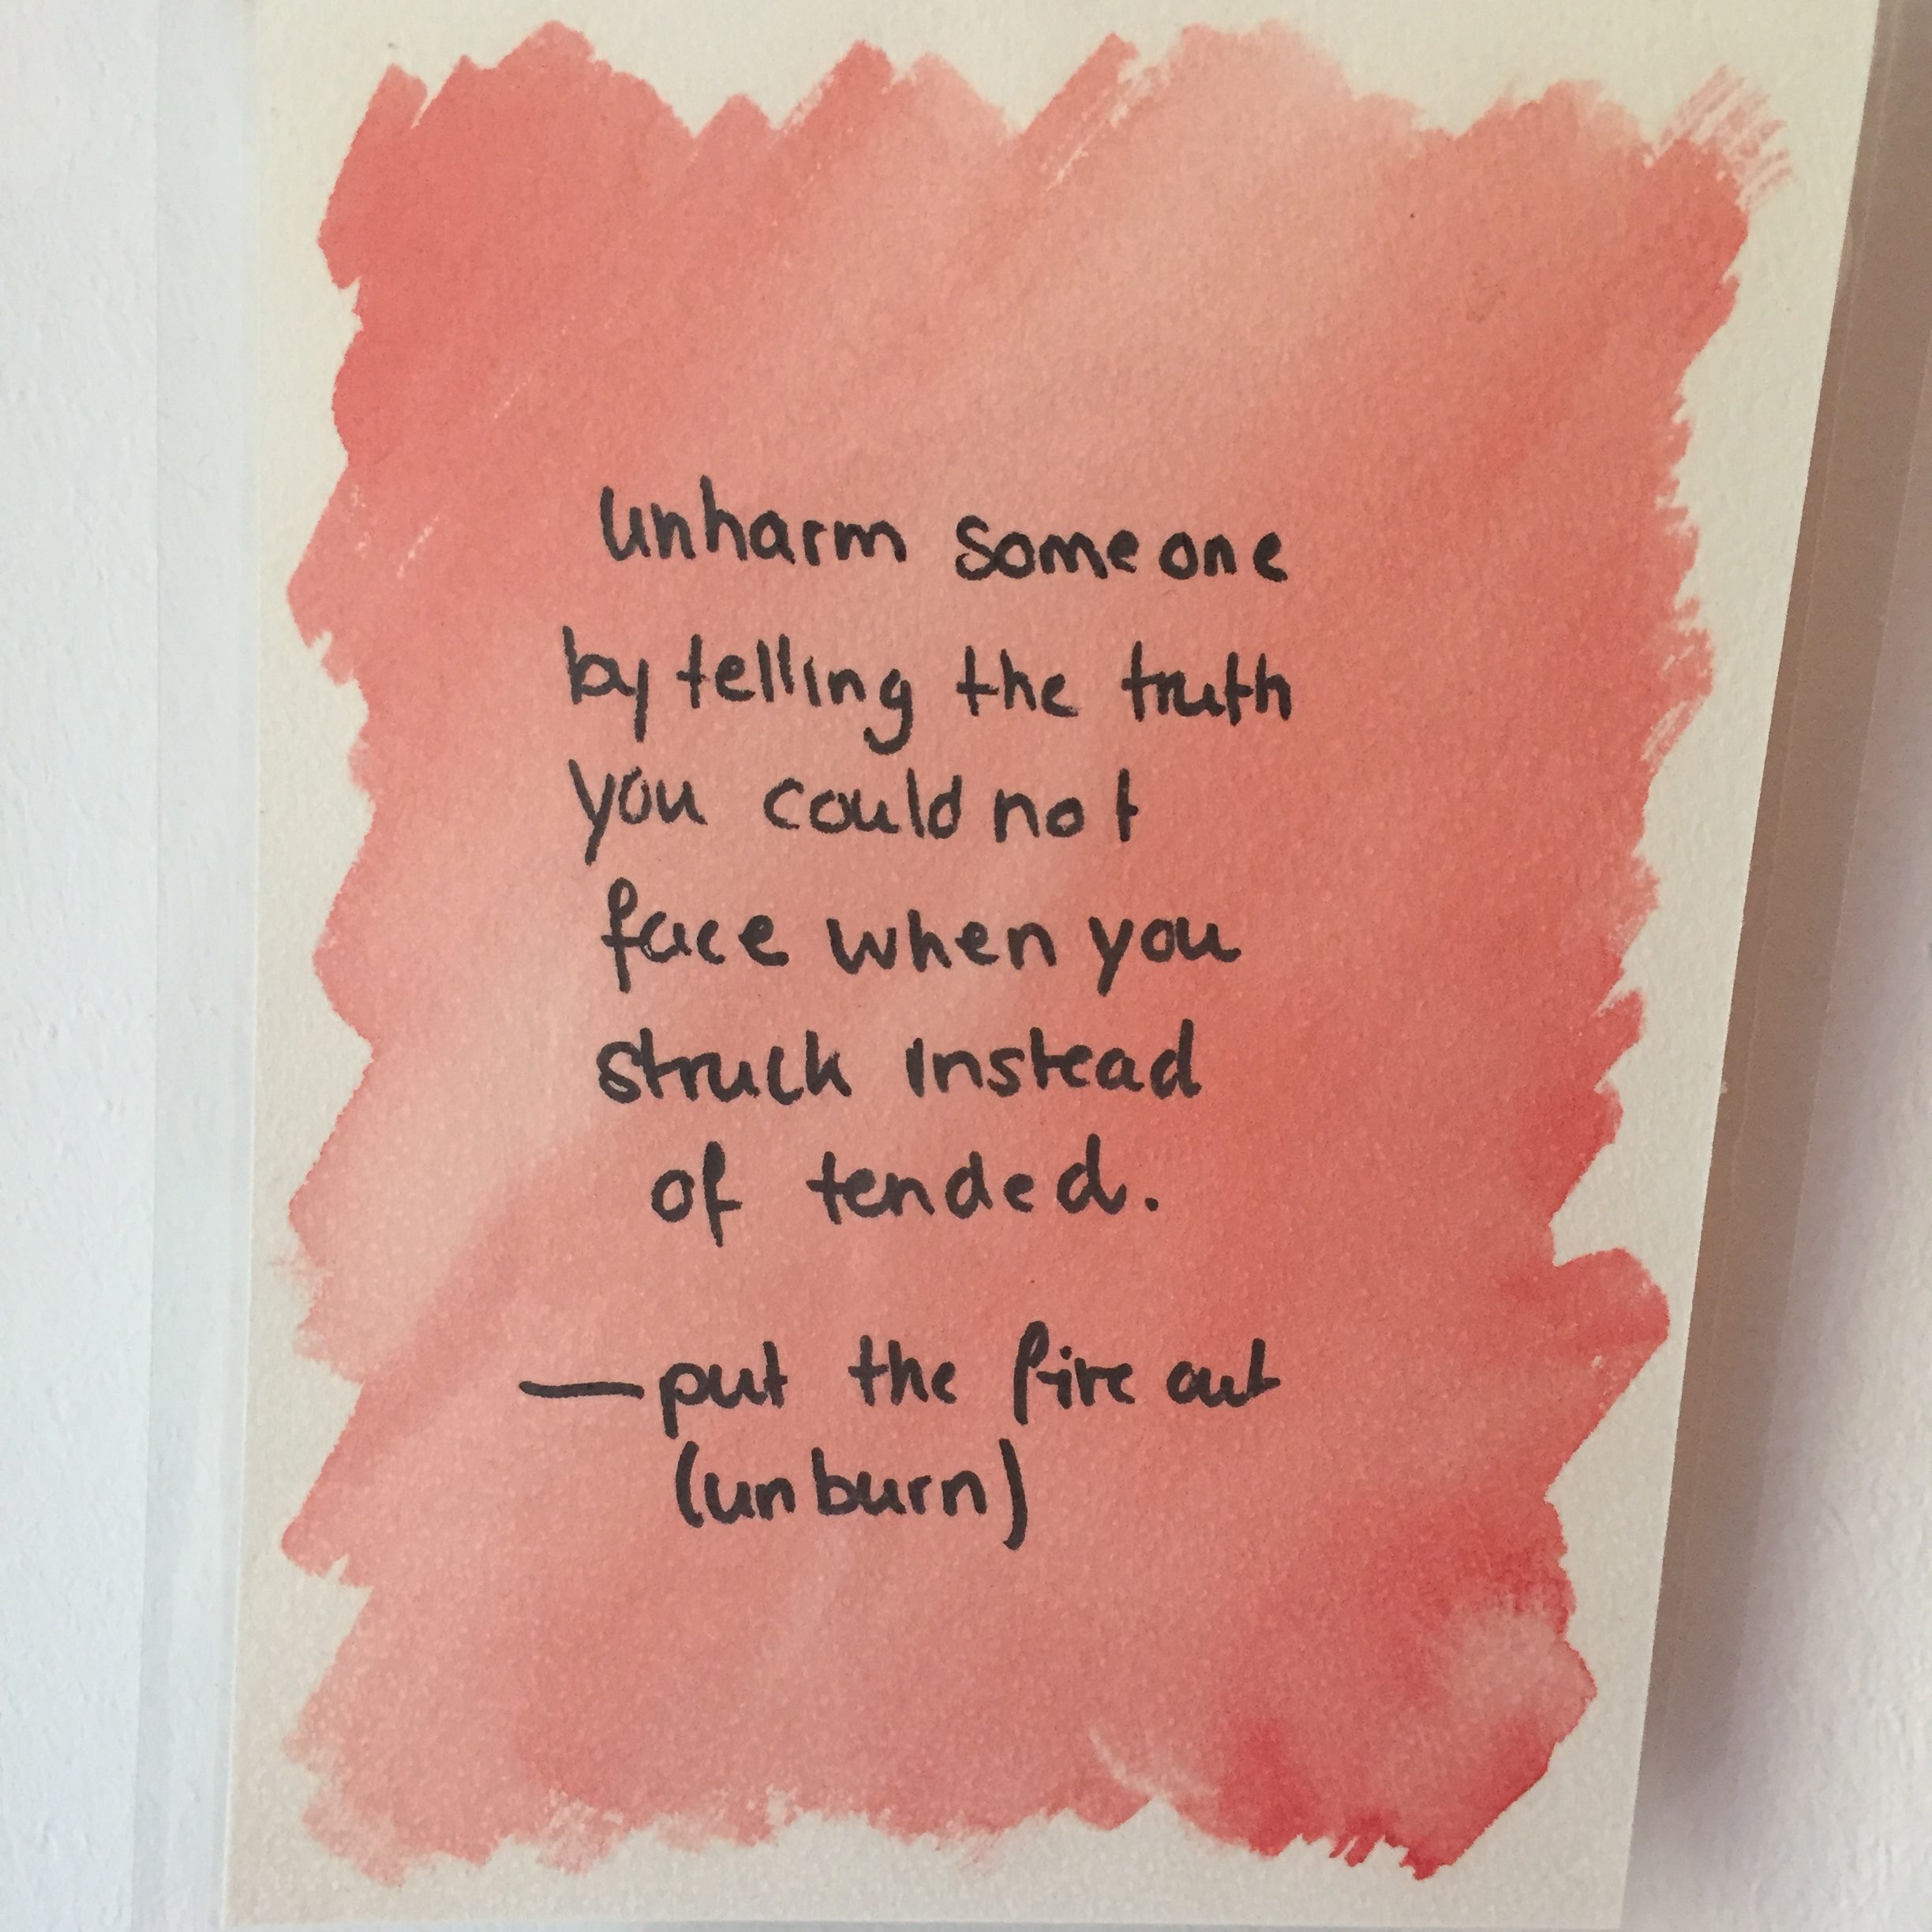 unharm someone
by telling the truth
you could not
face when you
struck instead
of tended.
—put the fire out
(unburn)